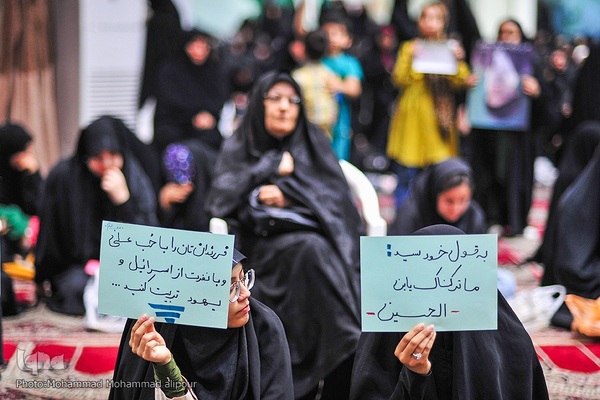 فرزندان تان را با حُب علی
و با نفرت از اسرائیل و
یهود تربیت کنید ...
به قول خود سید :
ما ترکناک یابن
- الحسین -
iqna
Photo:Mohammad Mohammad Alipour